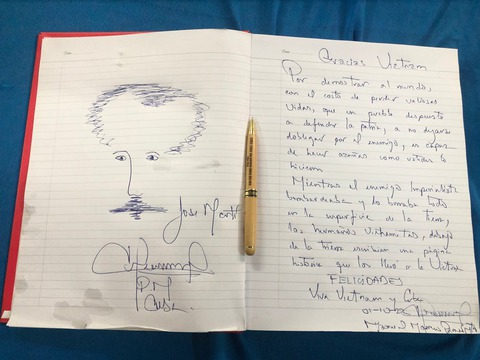 José Martí
P.M
Cuba.
Gracias Vietnam
Por demostrar al mundo,
con el costo de perder valiosas
vidas, que un pueblo dispuesto
a defender la patria, a no dejarse
doblegar por el enemigo, es capaz
de hacer azañas como ustedes lo
hicieron
Mientras el enemigo imperialista
bombardeaba y lo tomaba todo
en la superficie de la tierra,
los hermanos vietnamitas, debajo
de la tierra escribían una página
histórica que los llevó a la Victoria
FELICIDADES
Viva Vietnam y Cuba